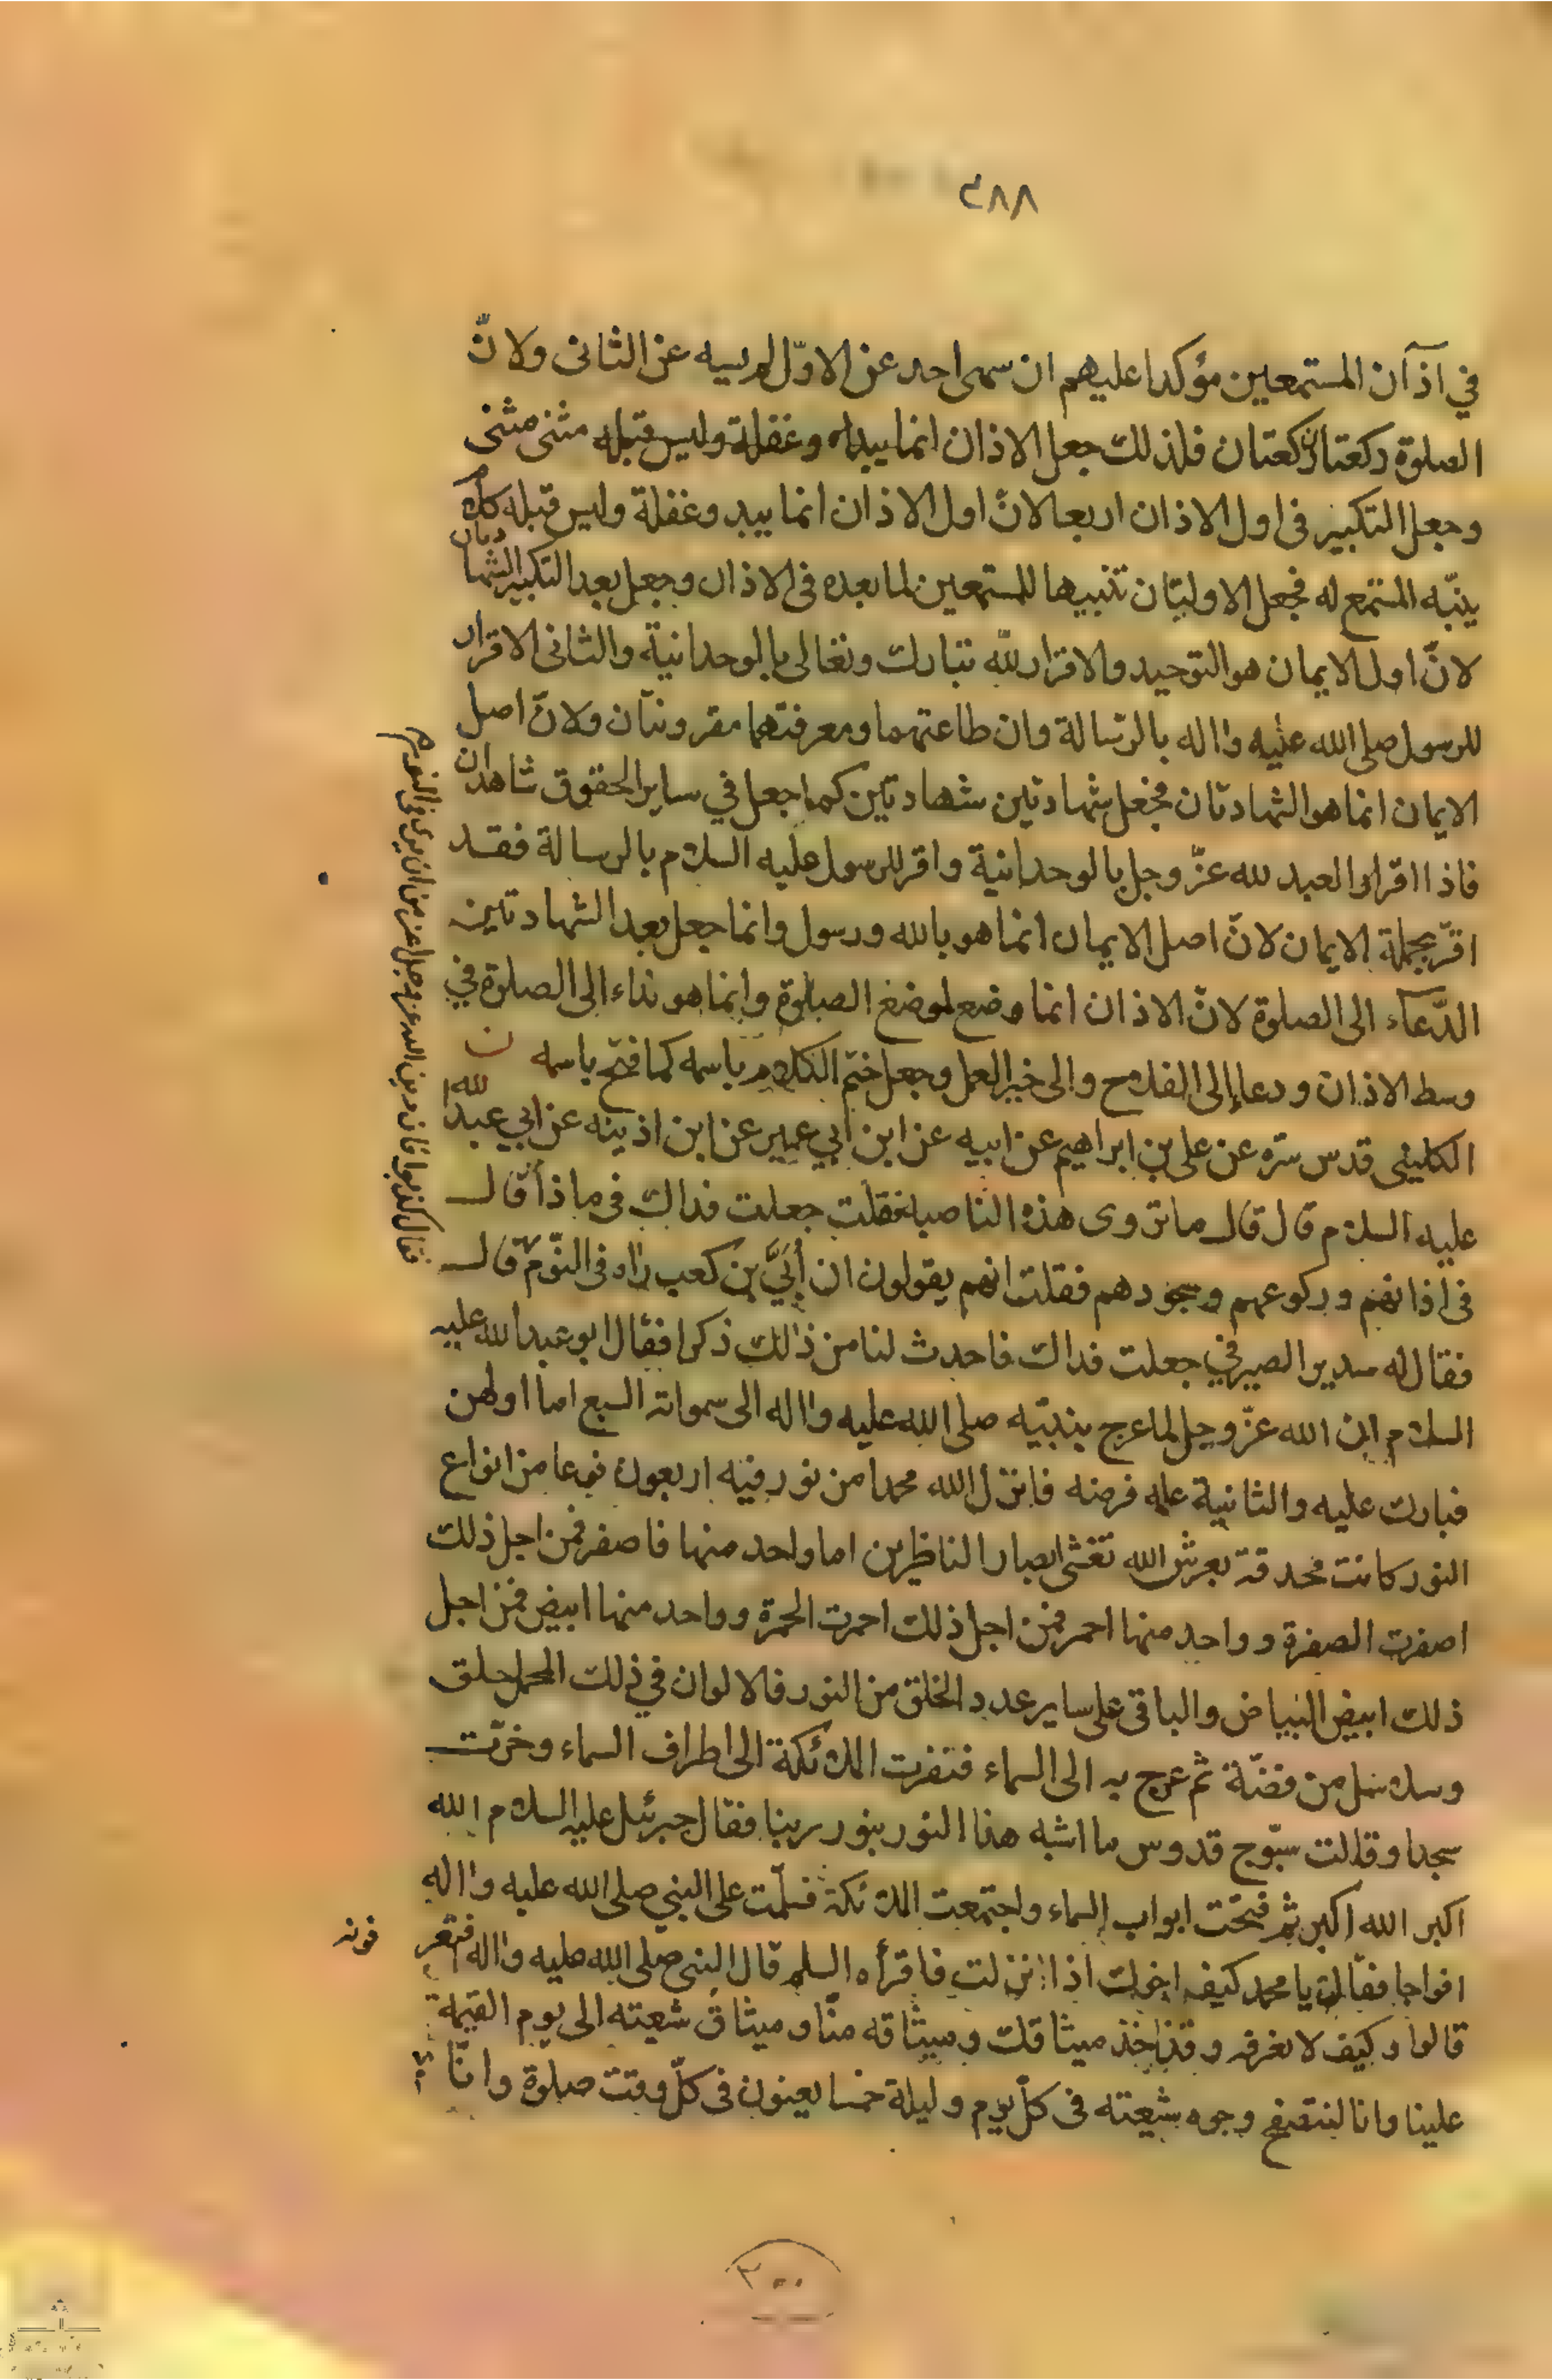 ٢٨٨
في اذآن المستمعين مؤكدا عليهم ان سهى احد عن الاوّل لم يسه عن الثانى ولانّ
الصلوة ركعتان ركعتان فلذلك جعل الاذان انما يبداه وغفلة وليس قبله مثنى مثنى
وجعل التكبير فى اول الاذان اربعا لانّ اول الاذان انما يبد وغفلة وليس قبله كلام
ينبّه المستمع له فجعل الاوليّان تنبيها للمستمعين لما بعده فى الاذان وجعل بعد التكبير الشهادتان
لانّ اول الايمان هو التوحيد والاقرار للّه تبارك وتعالى بالوحدانيّة والثانى الاقرار
للرسول صلى الله عليه واله بالرّسالة وان طاعتهما ومعرفتهما مقرونتان ولانّ اصل
الايمان انما هو الشهادتان فجعل شهادتين شهادتين كما جعل في ساير الحقوق شاهدان
فاذا اقرار العبد لله عزّ وجل بالوحدانية واقر للرسول عليه السلام بالرسالة فقد
اقرّ بجملة الايمان لانّ اصل الايمان انما هو بالله ورسول وانما جعل بعد الشهادتين
الدّعاء الى الصلوة لانّ الاذان انما وضع لموضع الصلوة وانما هو نداء الى الصلوة في
وسط الاذان ودعا إلى الفلاح والى خير العمل وجعل ختم الكلام باسمه كما فتح باسمه ن
الكلينى قدس سرّه عن على بن ابراهيم عن ابيه عن ابن ابي عمير عن ابن اذينه عن ابي عبد الله
عليه السلام قال قال ما تروى هذه الناصبه فقلت جعلت فداك فى ماذا قال
فى اذانهم وركوعهم وسجودهم فقلت انهم يقولون ان أُبَيَّ بن كعب راه فى النّوم قال
فقال كذبوا فان دين الله عز وجل اعز من ان يرى فى النوم
فقال له سدير الصيرفي جعلت فداك فاحدث لنا من ذلك ذكرا فقال ابو عبد الله عليه
السلام ان الله عزّ وجل لما عرج بنبيّه صلى الله عليه واله الى سمواته السبع اما اولهن
فبارك عليه والثانية علمه فرضه فانزل الله محمدا من نور فيه اربعون نوعا من انواع
النور كانت محدقة بعرش الله تغشى ابصار الناظرين اما واحد منها فاصفر فمن اجل ذلك
اصفرت الصفرة وواحد منها احمر فمن اجل ذلك احمرت الحمرة وواحد منها ابيض فمن اجل
ذلك ابيض البياض والباقى على ساير عدد الخلق من النور فالالوان في ذلك المحمل حلق
وسلاسل من فضّة ثم عرج به الى السماء فنفرت الملائكة الى اطراف السماء وخرّت
سجدا وقالت سبّوح قدوس ما اشبه هذا النور بنور ربنا فقال جبرئيل عليه السلام الله
اكبر الله اكبر ثم فتحت ابواب السماء واجتمعت الملائكة فسلّمت على النبي صلى الله عليه واله
افواجا فقالت يا محمد كيف اخوك اذا نزلت فاقرأه السلم قال النبى صلى الله عليه واله افتعرفونه
قالوا وكيف لا نعرفه وقد اخذ ميثاقك وميثاقه منّا وميثاق شعيته الى يوم القيمة
علينا وانا لنتصفح وجوه شيعته فى كلّ يوم وليلة خمسا يعنون فى كلّ وقت صلوة وانّا
٣٠٠